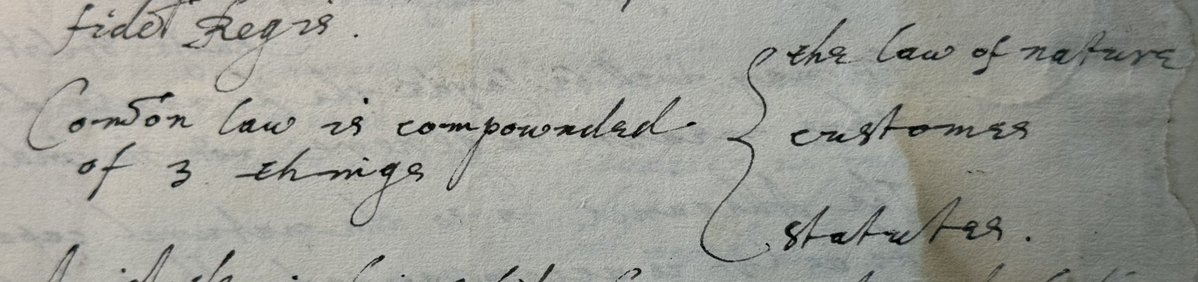 fidei Regis.
Common law is compounded
of 3 things
the law of nature
customes
statutes.